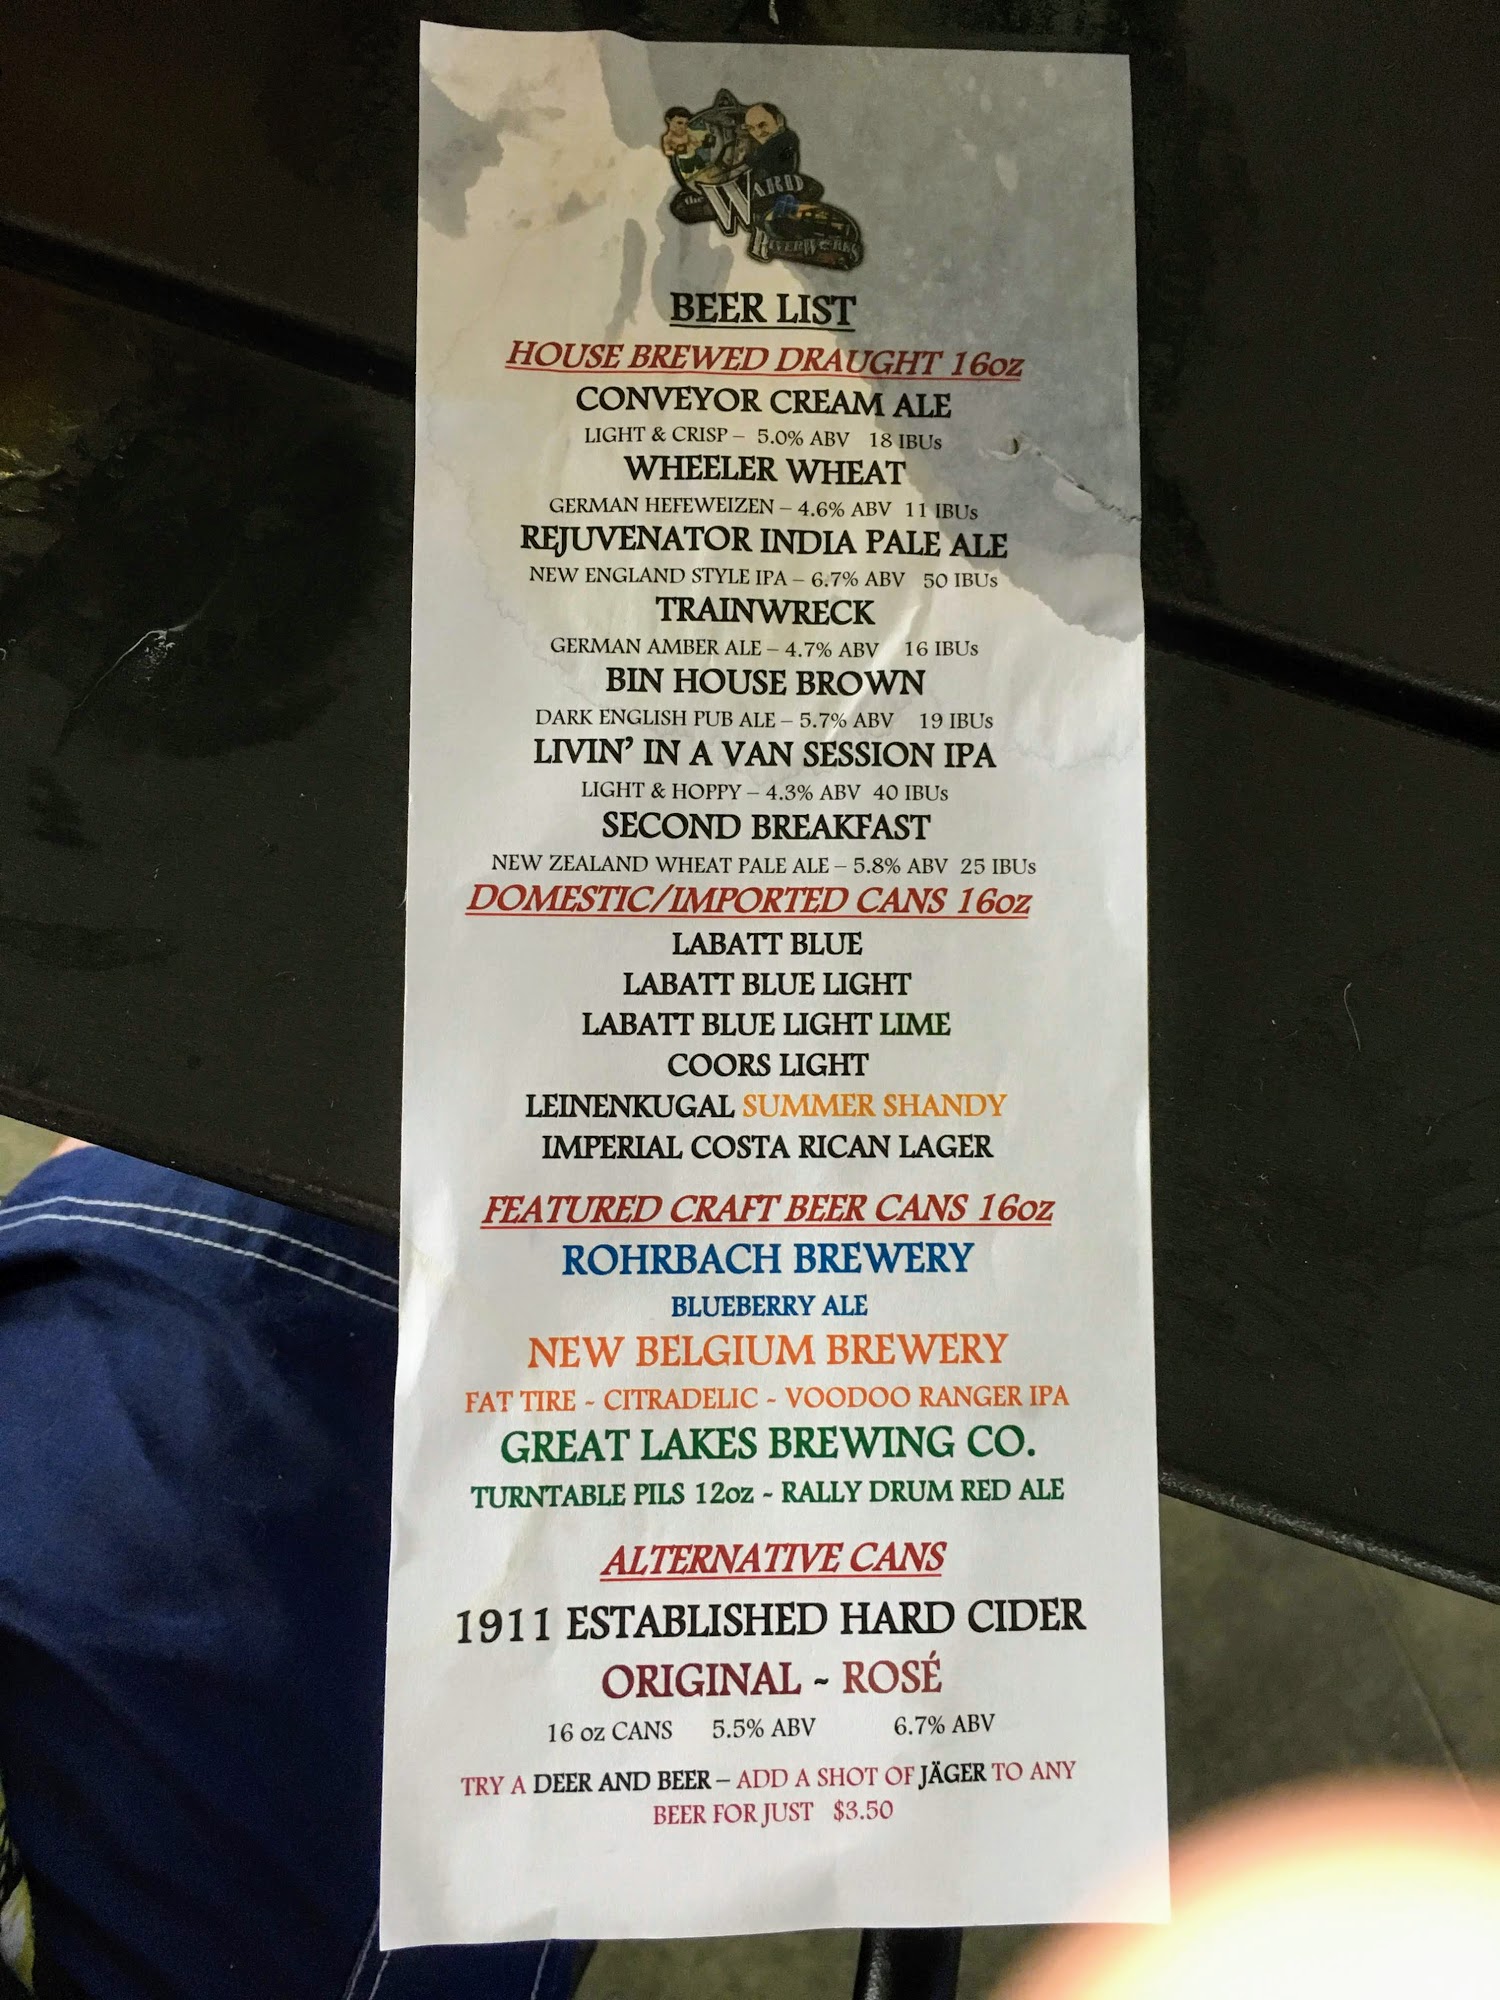 the WARD
RIVERWORKS
BEER LIST
HOUSE BREWED DRAUGHT 16oz
CONVEYOR CREAM ALE
LIGHT & CRISP – 5.0% ABV 18 IBUs
WHEELER WHEAT
GERMAN HEFEWEIZEN – 4.6% ABV 11 IBUs
REJUVENATOR INDIA PALE ALE
NEW ENGLAND STYLE IPA – 6.7% ABV 50 IBUs
TRAINWRECK
GERMAN AMBER ALE – 4.7% ABV 16 IBUs
BIN HOUSE BROWN
DARK ENGLISH PUB ALE – 5.7% ABV 19 IBUs
LIVIN’ IN A VAN SESSION IPA
LIGHT & HOPPY – 4.3% ABV 40 IBUs
SECOND BREAKFAST
NEW ZEALAND WHEAT PALE ALE – 5.8% ABV 25 IBUs
DOMESTIC/IMPORTED CANS 16oz
LABATT BLUE
LABATT BLUE LIGHT
LABATT BLUE LIGHT LIME
COORS LIGHT
LEINENKUGAL SUMMER SHANDY
IMPERIAL COSTA RICAN LAGER
FEATURED CRAFT BEER CANS 16oz
ROHRBACH BREWERY
BLUEBERRY ALE
NEW BELGIUM BREWERY
FAT TIRE ~ CITRADELIC ~ VOODOO RANGER IPA
GREAT LAKES BREWING CO.
TURNTABLE PILS 12oz ~ RALLY DRUM RED ALE
ALTERNATIVE CANS
1911 ESTABLISHED HARD CIDER
ORIGINAL ~ ROSÉ
16 oz CANS 5.5% ABV 6.7% ABV
TRY A DEER AND BEER – ADD A SHOT OF JÄGER TO ANY
BEER FOR JUST $3.50